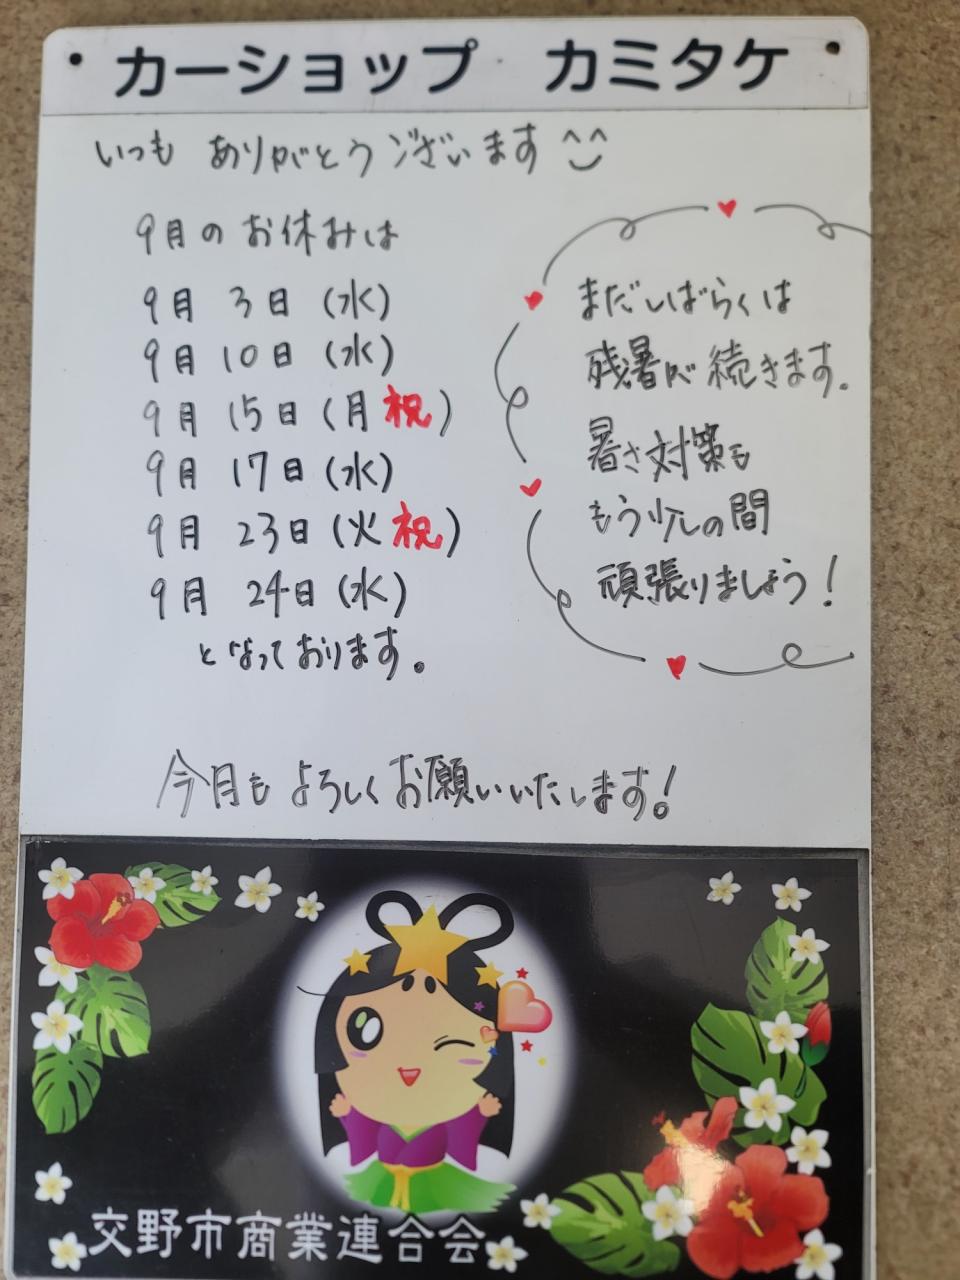 カーショップ カミタケ
いつも ありがとうございます^^
9月のお休みは
9月 3日 (水)
9月 10日 (水)
9月 15日 (月 祝)
9月 17日 (水)
9月 23日 (火 祝)
9月 24日 (水)
となっております。
まだしばらくは
残暑が続きます。
暑さ対策も
もう少しの間
頑張りましょう!
今月もよろしくお願いいたします!
交野市商業連合会